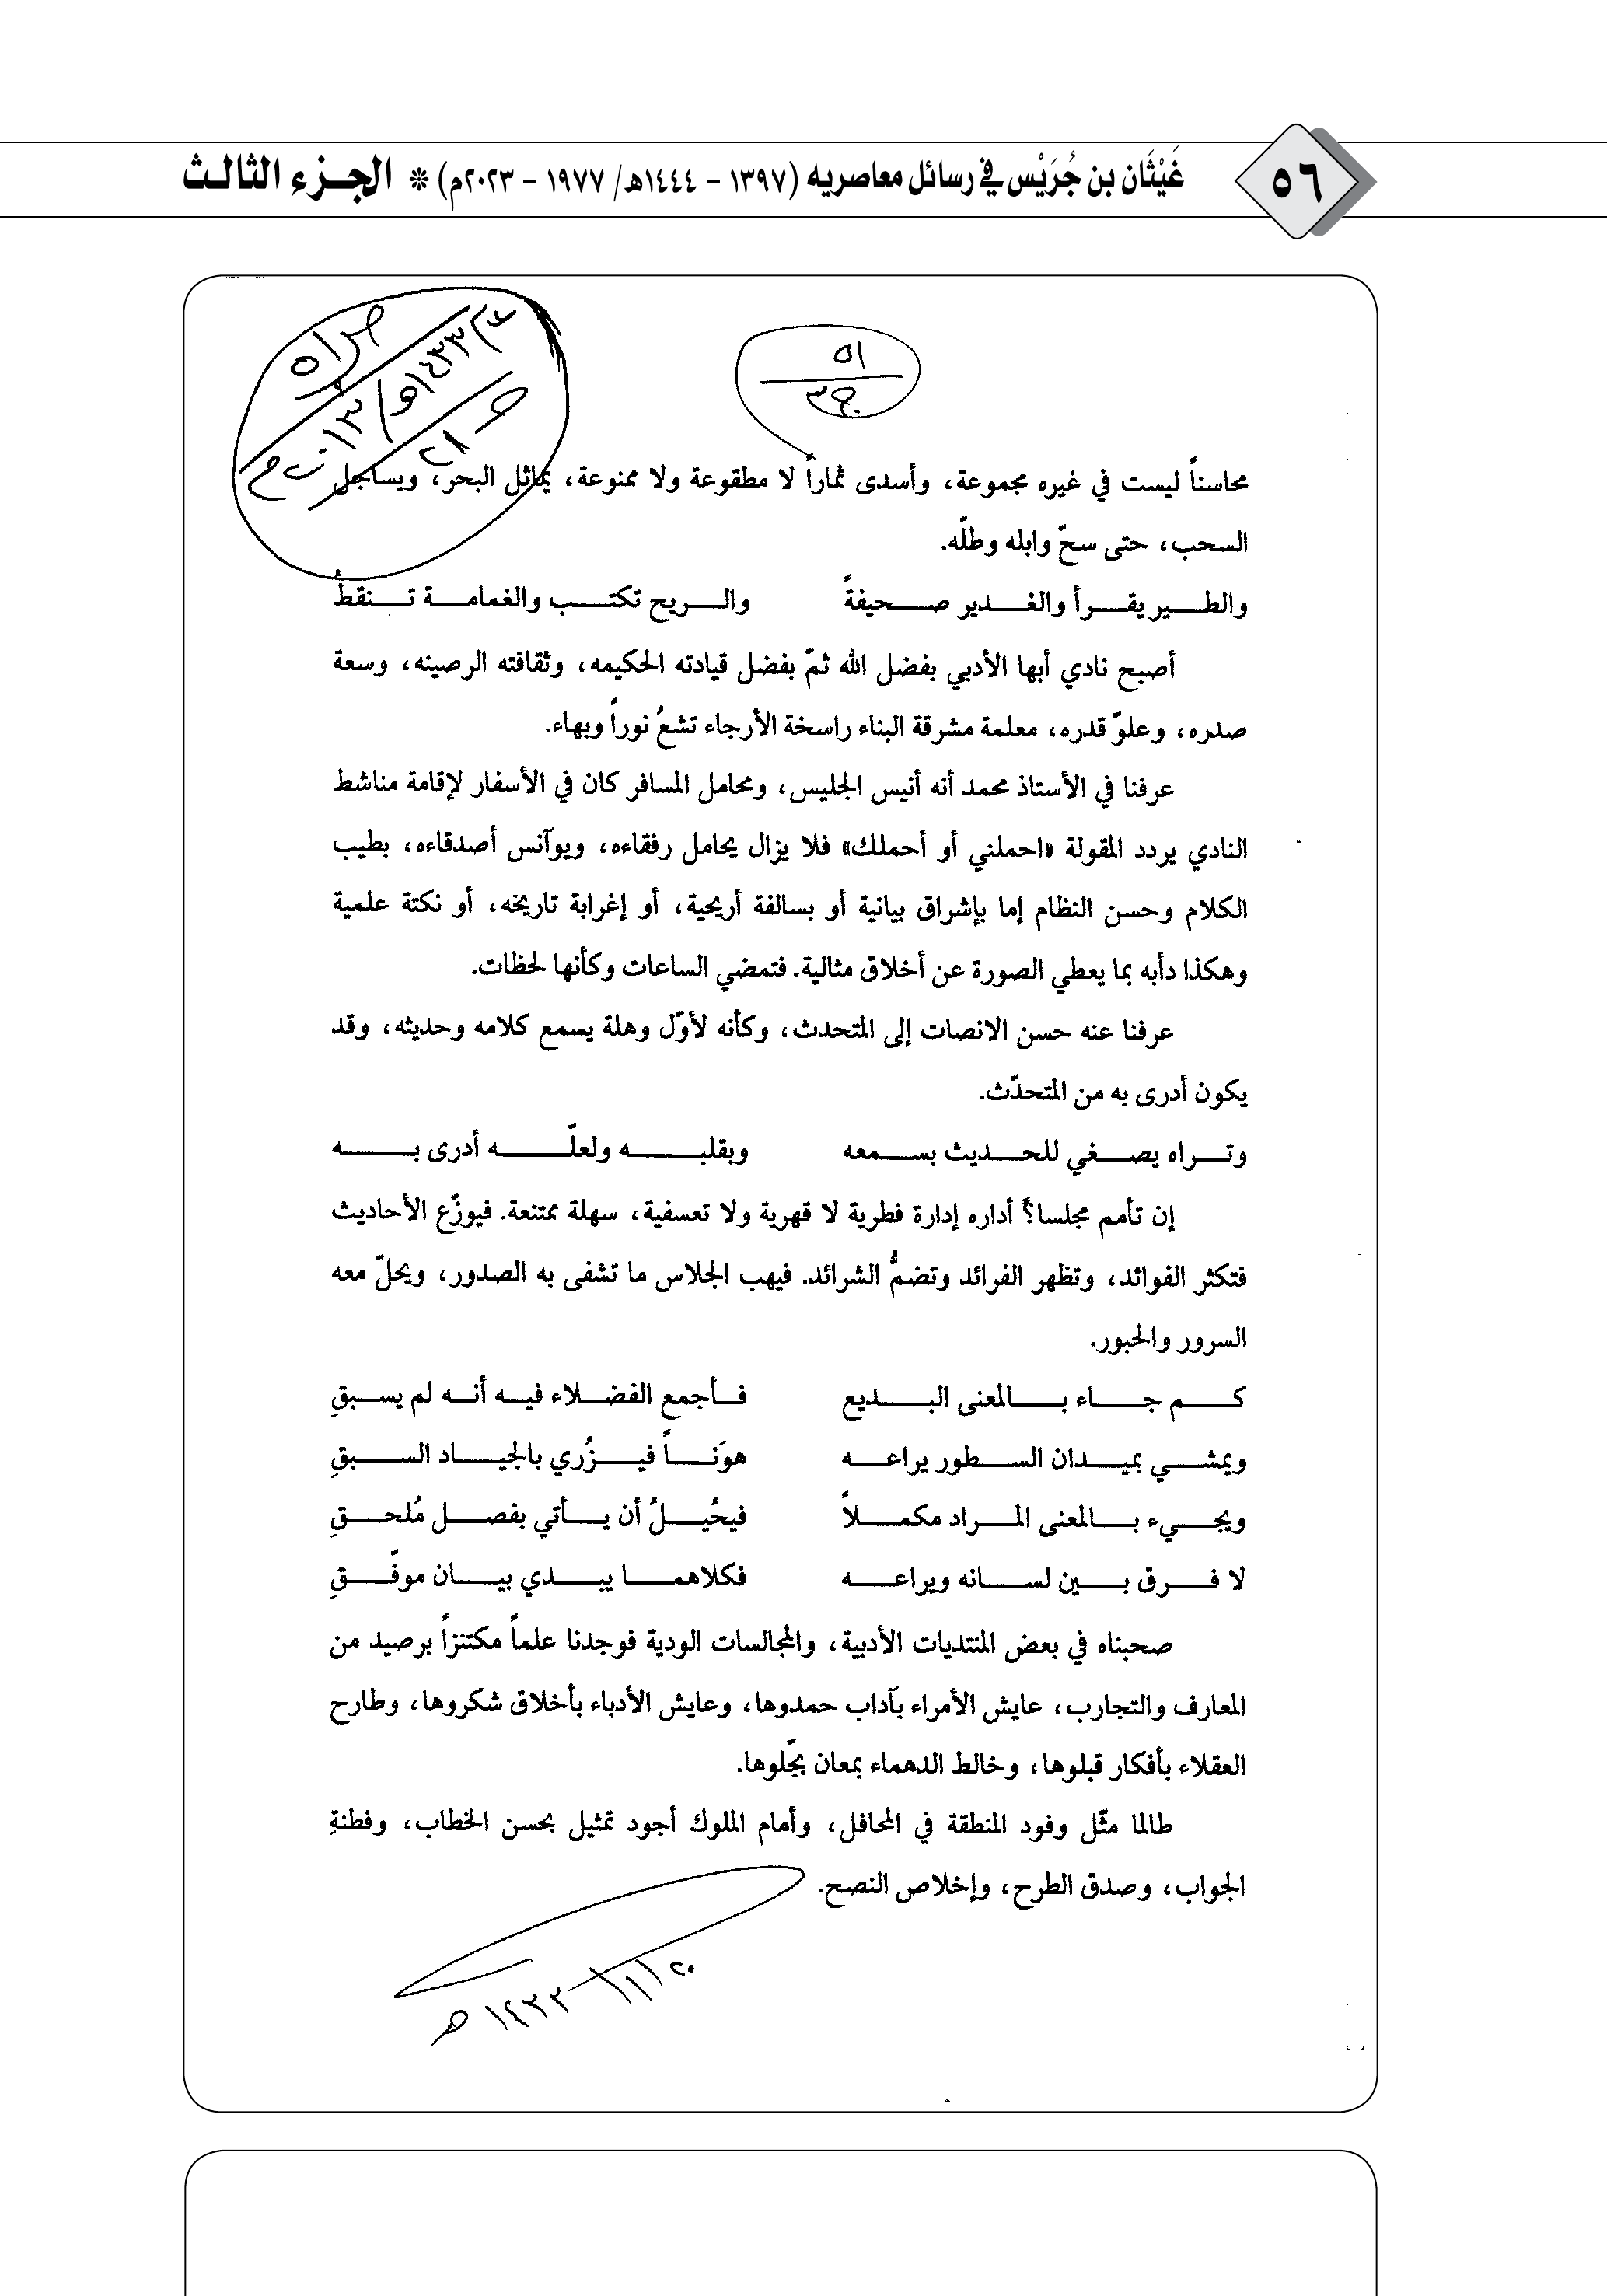 ٥٦
غَيْثَان بن جُرَيْس في رسائل معاصريه (١٣٩٧ – ١٤٤٤هـ/ ١٩٧٧ – ٢٠٢٣م) * الجـزء الثالـث
٥١
ج٣
١٤٣٣هـ/
محاسناً ليست في غيره مجموعة، وأسدى ثماراً لا مطقوعة ولا ممنوعة، يماثل البحر، ويساجل
السحب، حتى سحّ وابله وطلّه.
والطـــير يقـــرأ والغـــدير صـــحيفةً والـــريح تكتـــب والغمامـــة تـــنقطُ
أصبح نادي أبها الأدبي بفضل الله ثمّ بفضل قيادته الحكيمه، وثقافته الرصينه، وسعة
صدره، وعلوّ قدره، معلمة مشرقة البناء راسخة الأرجاء تشعُ نوراً وبهاء.
عرفنا في الأستاذ محمد أنه أنيس الجليس، ومحامل المسافر كان في الأسفار لإقامة مناشط
النادي يردد المقولة «احملني أو أحملك» فلا يزال يحامل رفقاءه، ويوآنس أصدقاءه، بطيب
الكلام وحسن النظام إما بإشراق بيانية أو بسالفة أريحية، أو إغرابة تاريخه، أو نكتة علمية
وهكذا دأبه بما يعطي الصورة عن أخلاق مثالية. فتمضي الساعات وكأنها لحظات.
عرفنا عنه حسن الانصات إلى المتحدث، وكأنه لأوّل وهلة يسمع كلامه وحديثه، وقد
يكون أدرى به من المتحدّث.
وتـــراه يصـــغي للحـــديث بســـمعه وبقلبـــه ولعلّـــه أدرى بـــه
إن تأمم مجلسا؟ً أداره إدارة فطرية لا قهرية ولا تعسفية، سهلة ممتنعة. فيوزّع الأحاديث
فتكثر الفوائد، وتظهر الفرائد وتضمُّ الشرائد. فيهب الجلاس ما تشفى به الصدور، ويحلّ معه
السرور والحبور.
كـــم جـــاء بـــالمعنى البـــديع فـــأجمع الفضـــلاء فيـــه أنـــه لم يســـبقِ
ويمشـــي بميـــدان الســـطور يراعـــه هوَنـــاً فيـــزُري بالجيـــاد الســـبقِ
ويجـــيء بـــالمعنى المـــراد مكمـــلاً فيحُيـــلُ أن يـــأتي بفصـــل مُلحـــقِ
لا فـــرق بـــين لســـانه ويراعـــه فكلاهمـــا يبـــدي بيـــان موفّـــقِ
صحبناه في بعض المنتديات الأدبية، والمجالسات الودية فوجدنا علماً مكتنزاً برصيد من
المعارف والتجارب، عايش الأمراء بآداب حمدوها، وعايش الأدباء بأخلاق شكروها، وطارح
العقلاء بأفكار قبلوها، وخالط الدهماء بمعان بجّلوها.
طالما مثّل وفود المنطقة في المحافل، وأمام الملوك أجود تمثيل بحسن الخطاب، وفطنةِ
الجواب، وصدق الطرح، وإخلاص النصح.
٢٠/١/١٤٣٣هـ